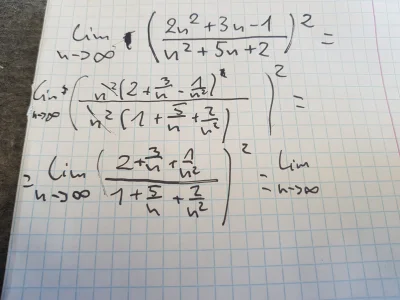 lim n→∞ ((2n²+3n-1)/(n²+5n+2))² =
lim n→∞ (n²(2+3/n-1/n²)/n²(1+5/n+2/n²))² =
= lim n→∞ ((2+3/n+1/n²)/(1+5/n+2/n²))² = lim n→∞